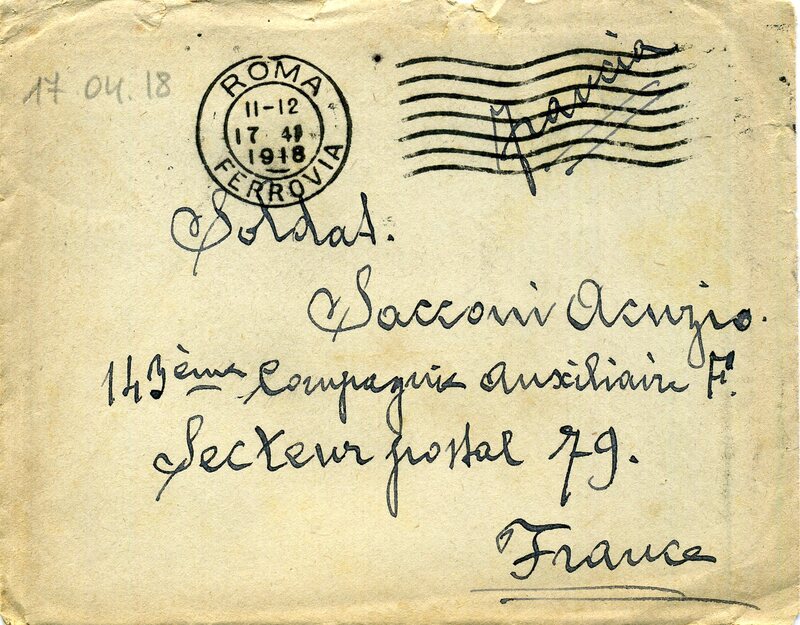 17 04.18
ROMA
11-12
17 4
1918
FERROVIA
Francia
Soldat.
Sacconi Acuzio.
143ème Compagnie Auxiliaire F.
Secteur postal 79.
France